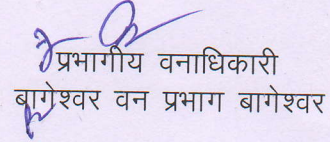 प्रभागीय वनाधिकारी
बागेश्वर वन प्रभाग बागेश्वर